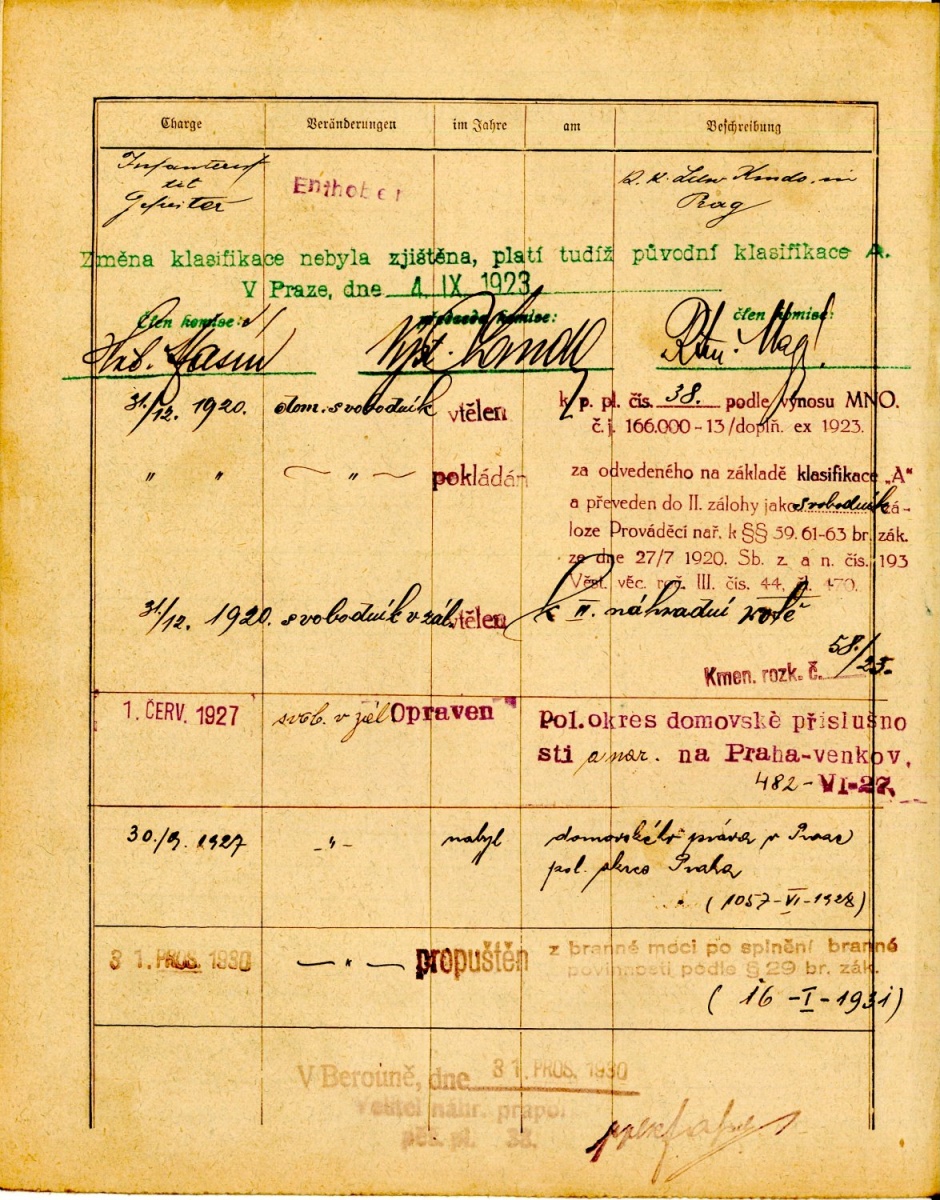 Charge Veränderungen im Jahre am Beschreibung
Infanterist
tit
Gefreiter
Enthoben
k. k. Ldw Kmdo. in
Prag
Změna klasifikace nebyla zjištěna, platí tudíž původní klasifikace A.
V Praze, dne 4 IX 1923
člen komise: předseda komise: člen komise:
31./12. 1920. dom. svobodník vtělen k p. pl. čís. 38. podle výnosu MNO.
č. j. 166.000-13/doplň. ex 1923.
" " — " — pokládán za odvedeného na základě klasifikace „A"
a převeden do II. zálohy jako svobodník zá-
loze Prováděcí nař. k §§ 59. 61-63 br. zák.
ze dne 27/7 1920. Sb. z. a n. čís. 193
Věst. věc. rož. III. čís. 44, čl. 470.
31./12. 1920. svobodník v zál. vtělen k III. náhradní rotě
Kmen. rozk. č. 58./23.
1. ČERV. 1927 svob. v zál Opraven Pol. okres domovské příslušno
sti a nar. na Praha-venkov,
482-VI-27.
30./9. 1927 -"- nabyl domovského práva v Praze
pol. okres Praha
(1057-VI-1928)
31. PROS. 1930 — " — propuštěn z branné moci po splnění branné
povinnosti podle § 29 br. zák.
(16-I-1931)
V Berouně, dne 31. PROS. 1930
Velitel náhr. prapor
pěš. pl. 38.